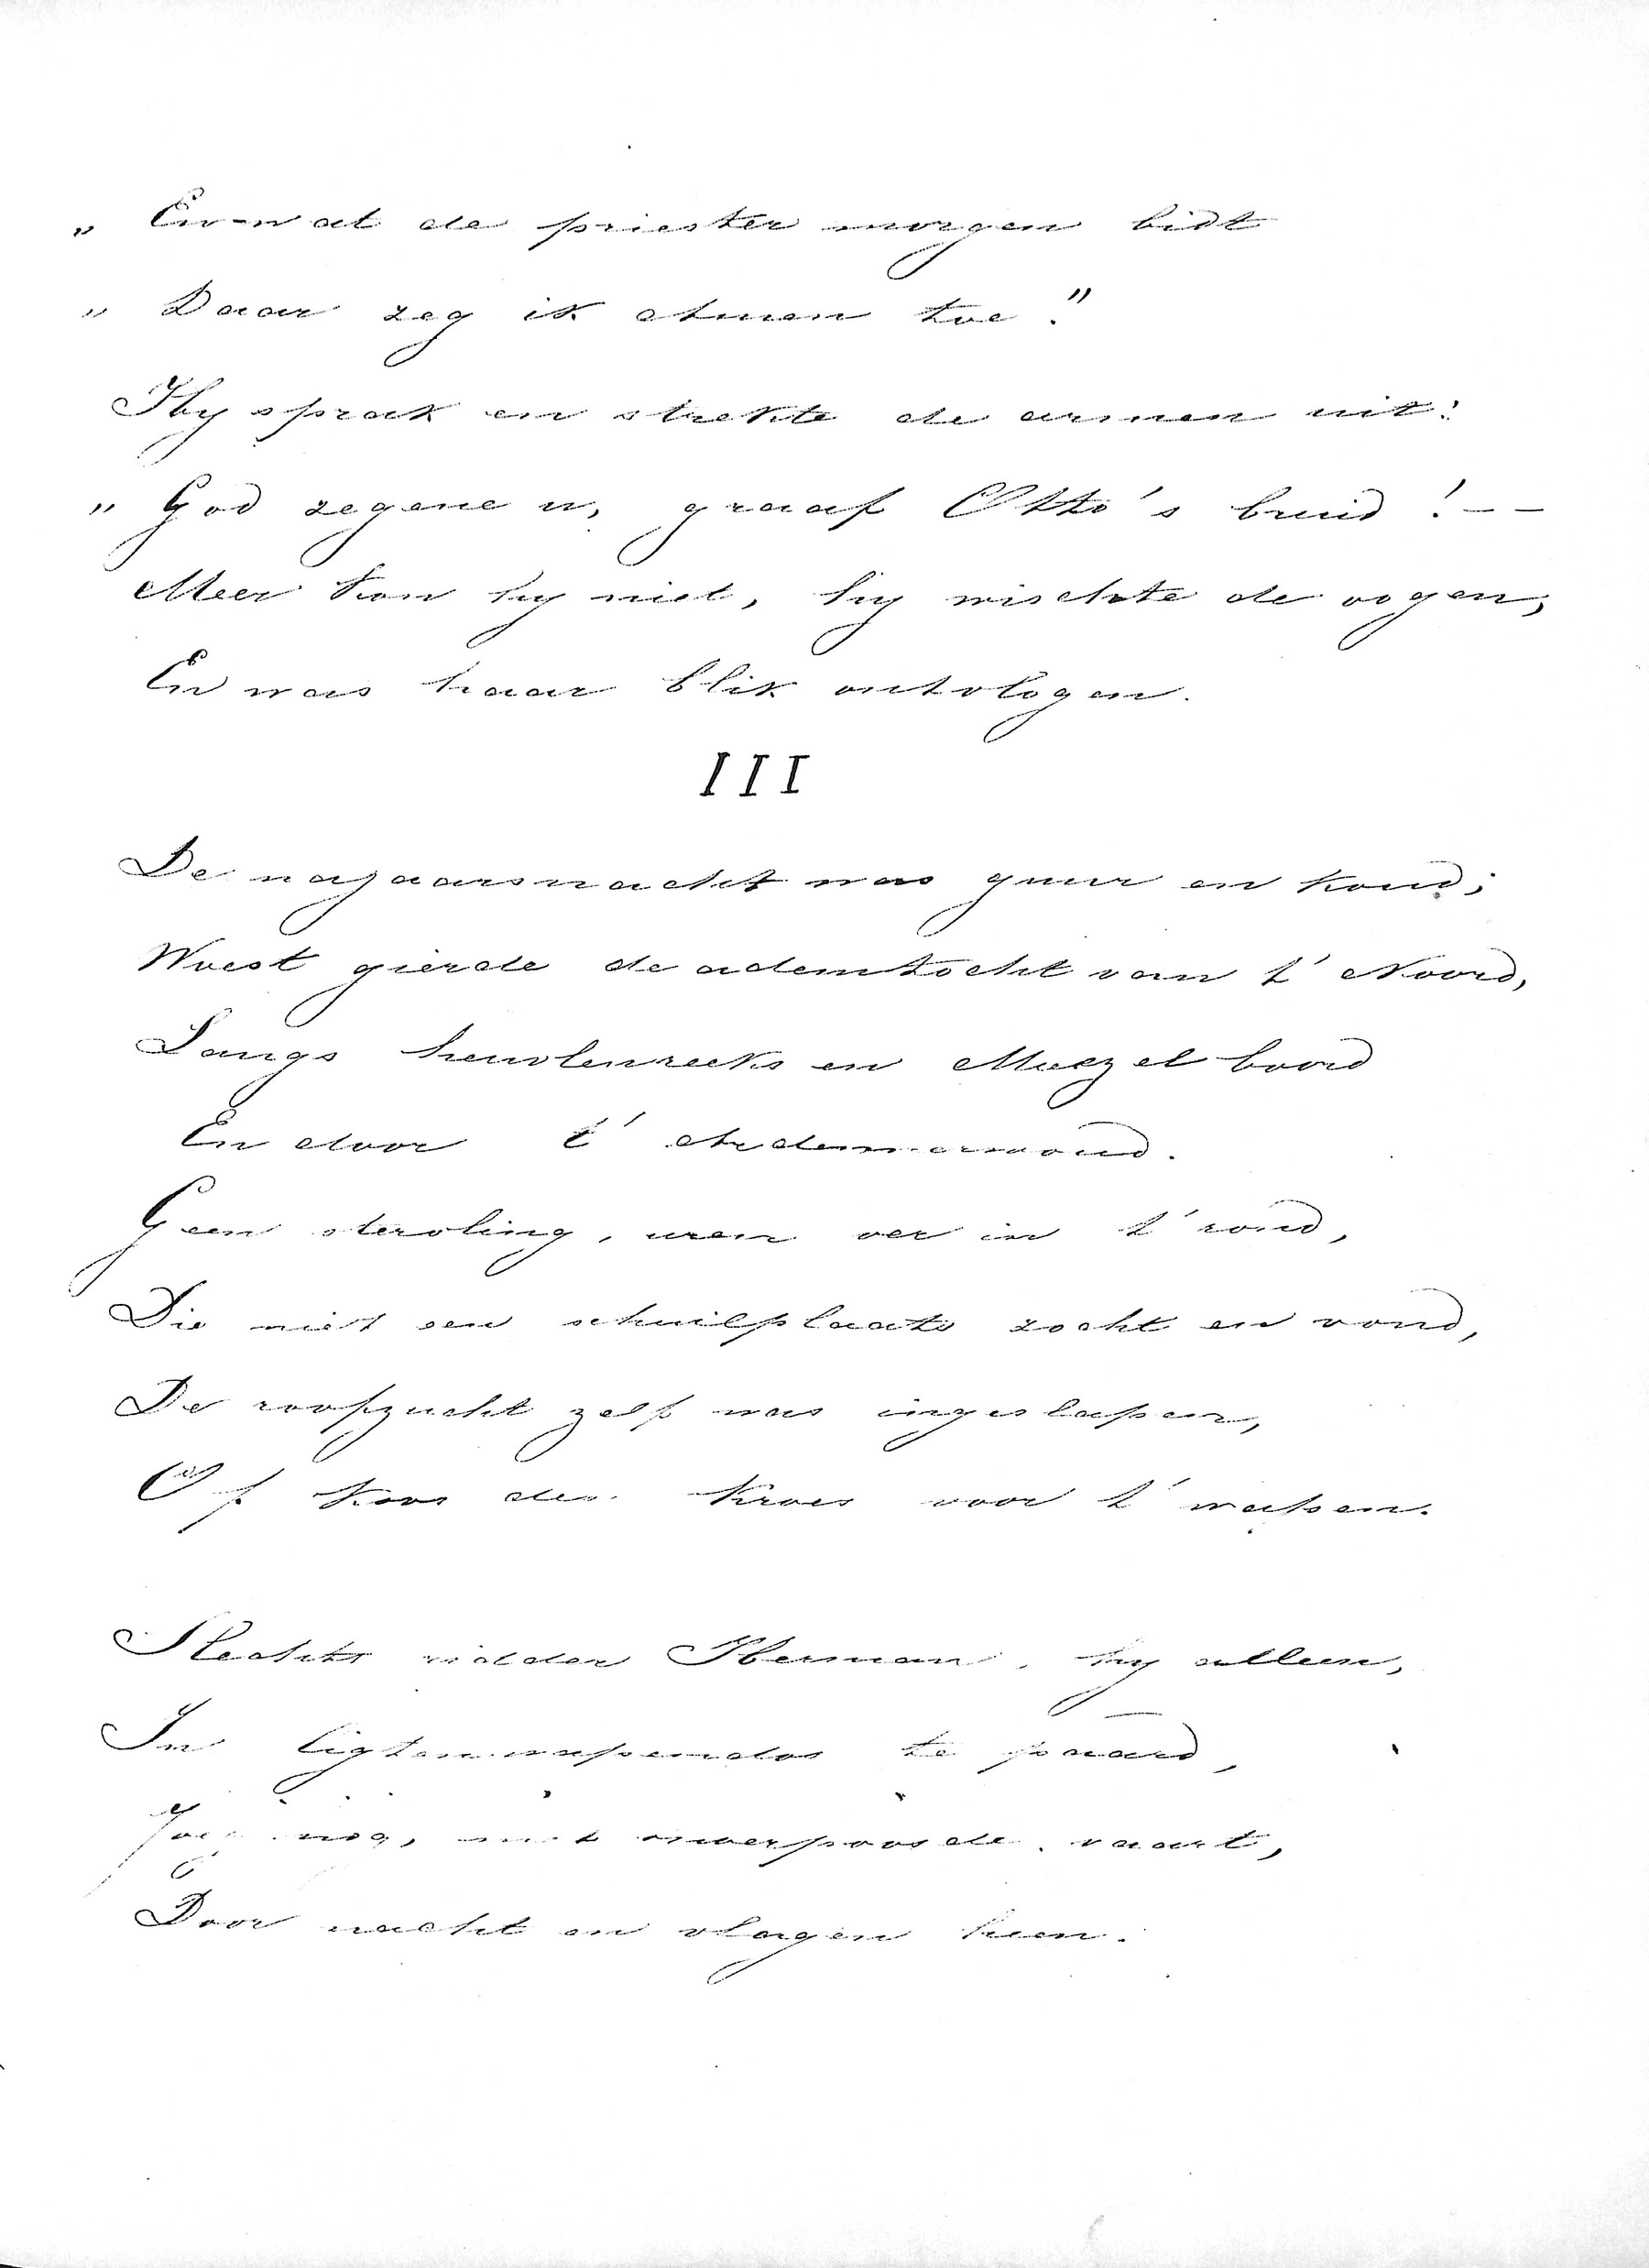 „ En wat de priester morgen bidt
„ Daar zeg ik Amen toe."
Hy sprak en strekte de armen uit:
„ God zegene u, graaf Otto's bruid! --
Meer kon hy niet, hy wischte de oogen,
En was haar blik ontvlogen.
III
De najaarsnacht was guur en koud;
Woest gierde de ademtocht van t' Noord,
Langs heuvlenreeks en Moezelboord
En door t' Ardennerwoud.
Geen sterveling, uren ver in t' rond,
Die niet een schuilplaats zocht en vond,
De roofzucht zelf was ingeslapen,
Of koos den kroes voor t' wapen.
Slechts ridder Herman, hy alleen,
In ligten wapendos te paard,
Joeg nog, met onverpoosde vaart,
Door nacht en vlagen heen.